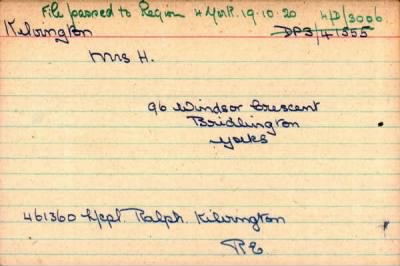 File passed to Region 4 York. 19.10.20 4D/3006
Kilvington DP3/41555
Mrs H.
96 Windsor Crescent
Bridlington
Yorks
461360 L/Cpl. Ralph. Kilvington
R.E.